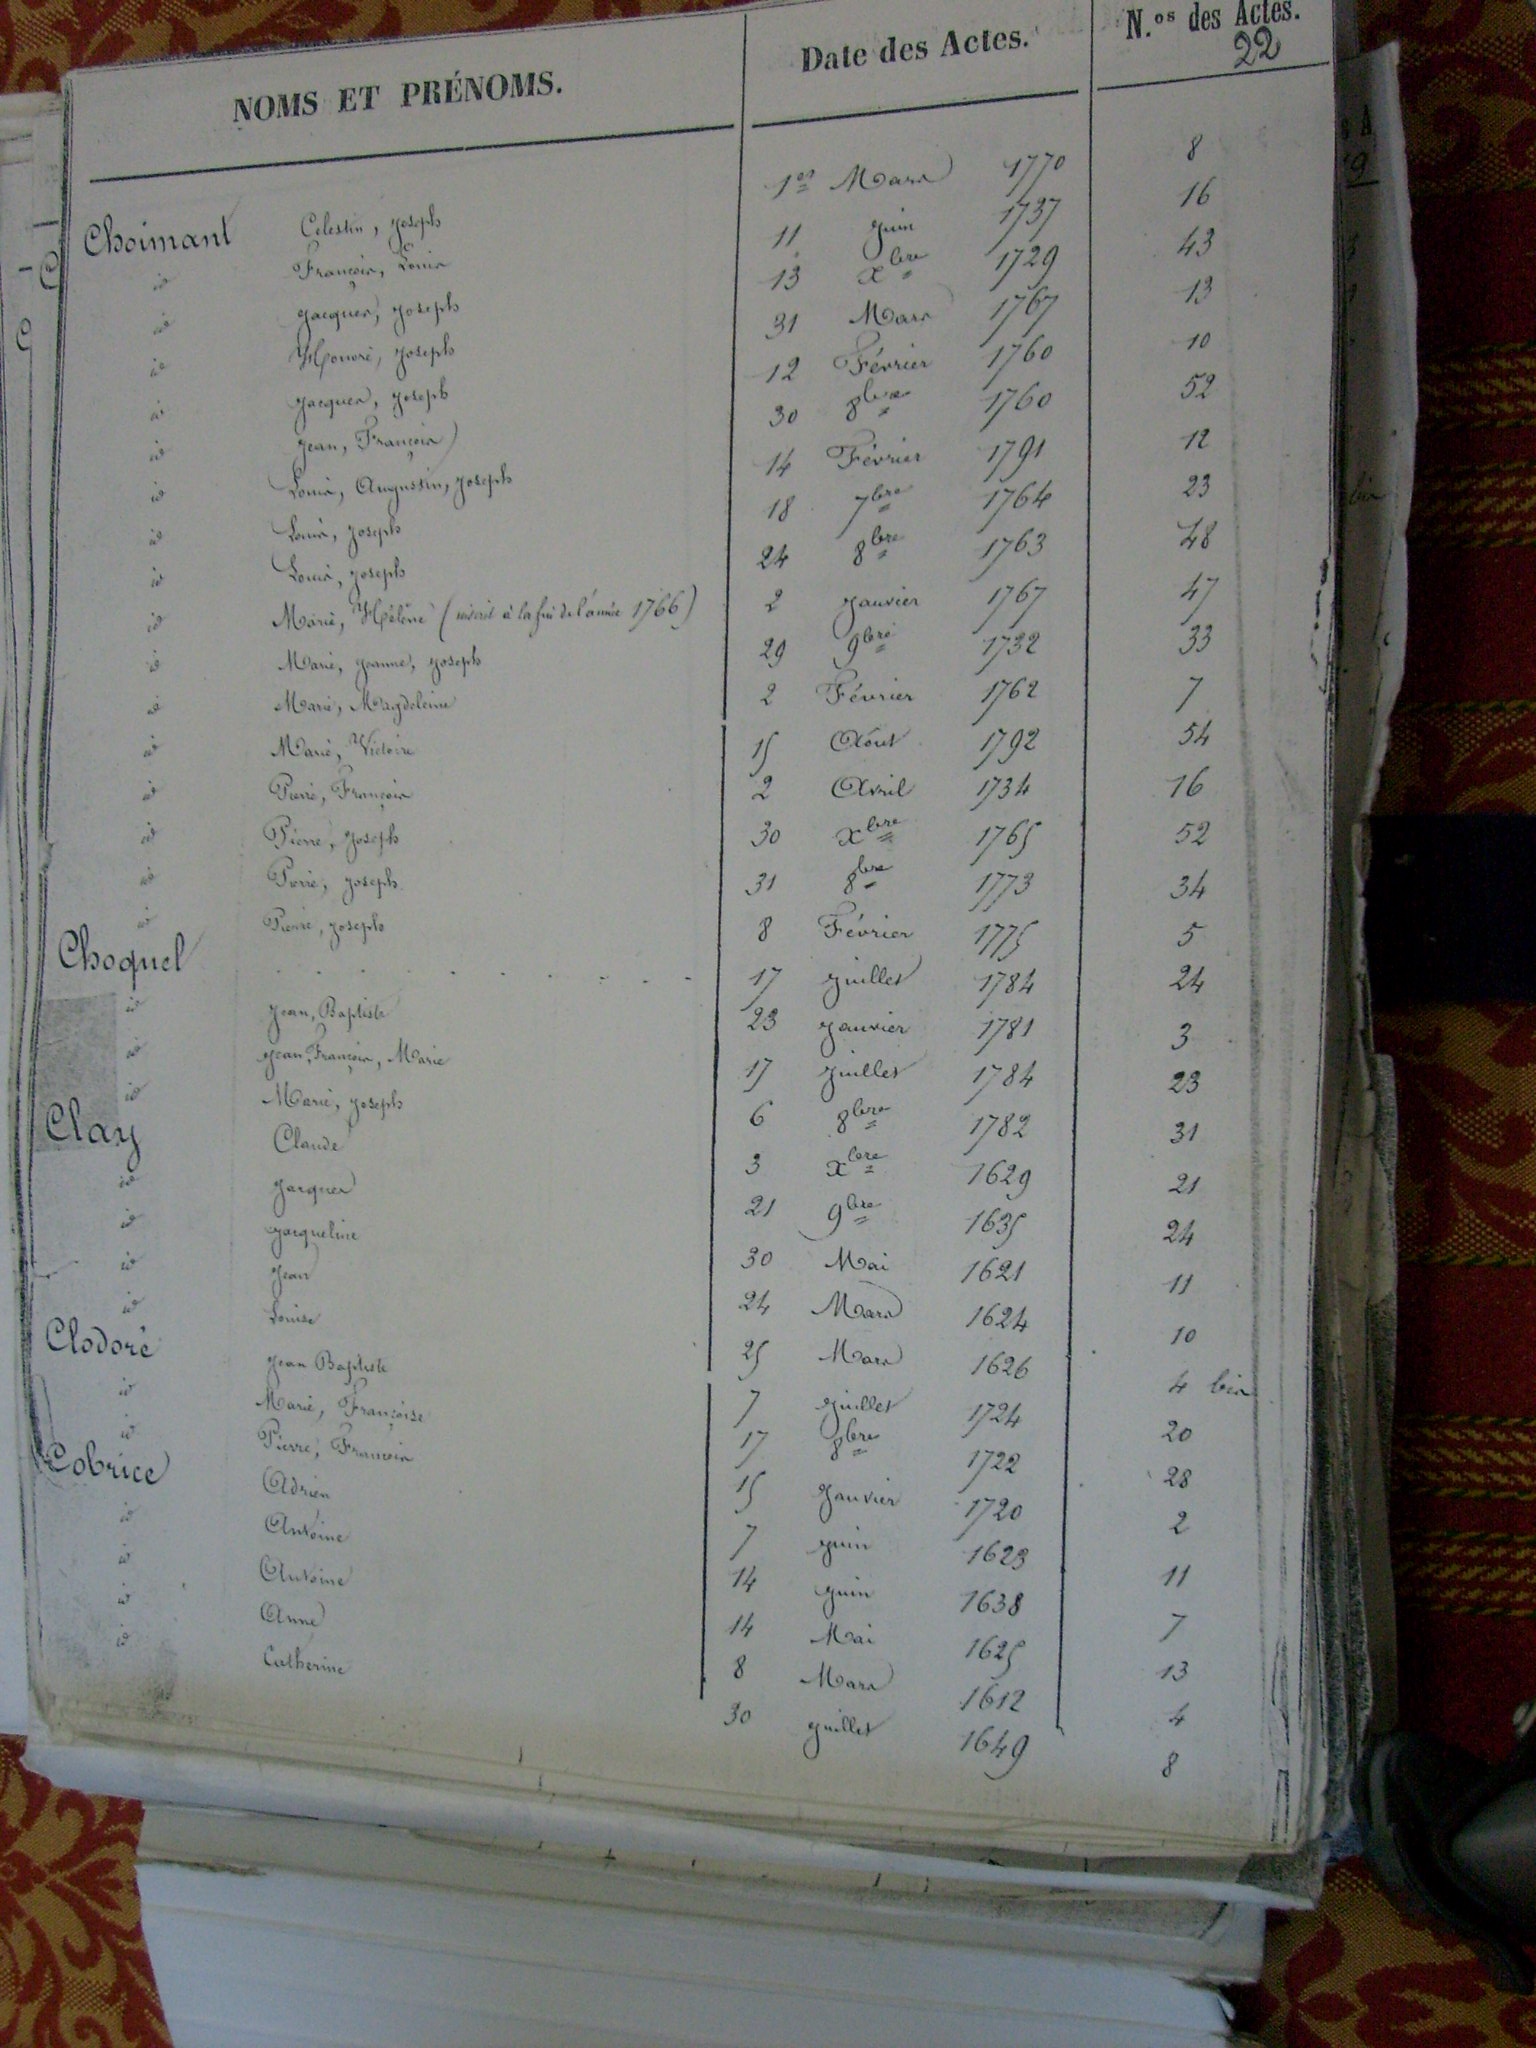 NOMS ET PRÉNOMS. Date des Actes. N.os des Actes.
22
Choimant Celestin, Joseph 1er Mars 1770 8
id François, Louis 11 Juin 1737 16
id Jacques, Joseph 13 Xbre 1729 43
id Honoré, Joseph 31 Mars 1767 13
id Jacques, Joseph 12 Février 1760 10
id Jean, François 30 8bre 1760 52
id Louis, Augustin, Joseph 14 Février 1791 12
id Louis, Joseph 18 7bre 1764 23
id Louis, Joseph 24 8bre 1763 48
id Marie, Hélène (inscrit à la fin de l'année 1766) 2 Janvier 1767 47
id Marie, Jeanne, Joseph 29 9bre 1732 33
id Marie, Magdeleine 2 Février 1762 7
id Marie, Victoire 15 Août 1792 54
id Pierre, François 2 Avril 1734 16
id Pierre, Joseph 30 Xbre 1765 52
id Pierre, Joseph 31 8bre 1773 34
id Pierre, Joseph 8 Février 1775 5
Choquel . . . . . . . . . 17 Juillet 1784 24
id Jean, Baptiste 23 Janvier 1781 3
id Jean, François, Marie 17 Juillet 1784 23
id Marie, Joseph 6 8bre 1782 31
Clay Claude 3 Xbre 1629 21
id Jacques 21 9bre 1635 24
id Jacqueline 30 Mai 1621 11
id Jean 24 Mars 1624 10
id Louise 25 Mars 1626 4 bis
Clodoré Jean Baptiste 7 Juillet 1724 20
id Marie, Françoise 17 8bre 1722 28
id Pierre, François 15 Janvier 1720 2
Cobrice Adrien 7 Juin 1623 11
id Antoine 14 Juin 1638 7
id Antoine 14 Mai 1625 13
id Anne 8 Mars 1612 4
id Catherine 30 Juillet 1649 8